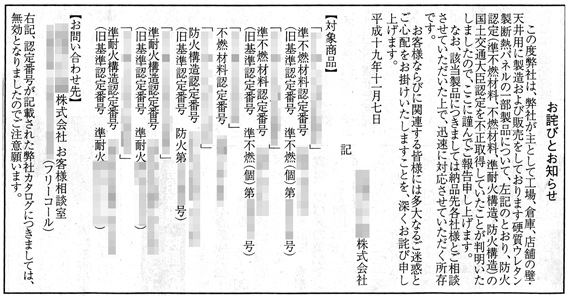 お詫びとお知らせ
この度弊社は、弊社が主として工場、倉庫、店舗の壁・
天井用に製造および販売をしております硬質ウレタン
製断熱パネルの一部製品について、左記のとおり、防火
認定(準不燃材料、不燃材料、準耐火構造、防火構造)の
国土交通大臣認定を不正取得していたことが判明いた
しましたので、ここに謹んでご報告申し上げます。
なお、該当製品につきましては納品先各社様とご相談
させていただいた上で、迅速に対応させていただく所存
です。
お客様ならびに関連する皆様には多大なるご迷惑と
ご心配をお掛けいたしますことを、深くお詫び申し
上げます。
平成十九年十一月七日
株式会社
記
【対象商品】
「」
準不燃材料認定番号
(旧基準認定番号 準不燃(個)第 号)
「」
準不燃材料認定番号
(旧基準認定番号 準不燃(個)第 号)
「」
不燃材料認定番号
「」
防火構造認定番号
(旧基準認定番号 防火第 号)
「」
準耐火構造認定番号
(旧基準認定番号 準耐火 )
準耐火構造認定番号
(旧基準認定番号 準耐火 )
【お問い合わせ先】
株式会社 お客様相談室
(フリーコール)
右記、認定番号が記載された弊社カタログにつきましては、
無効となりましたのでご注意願います。